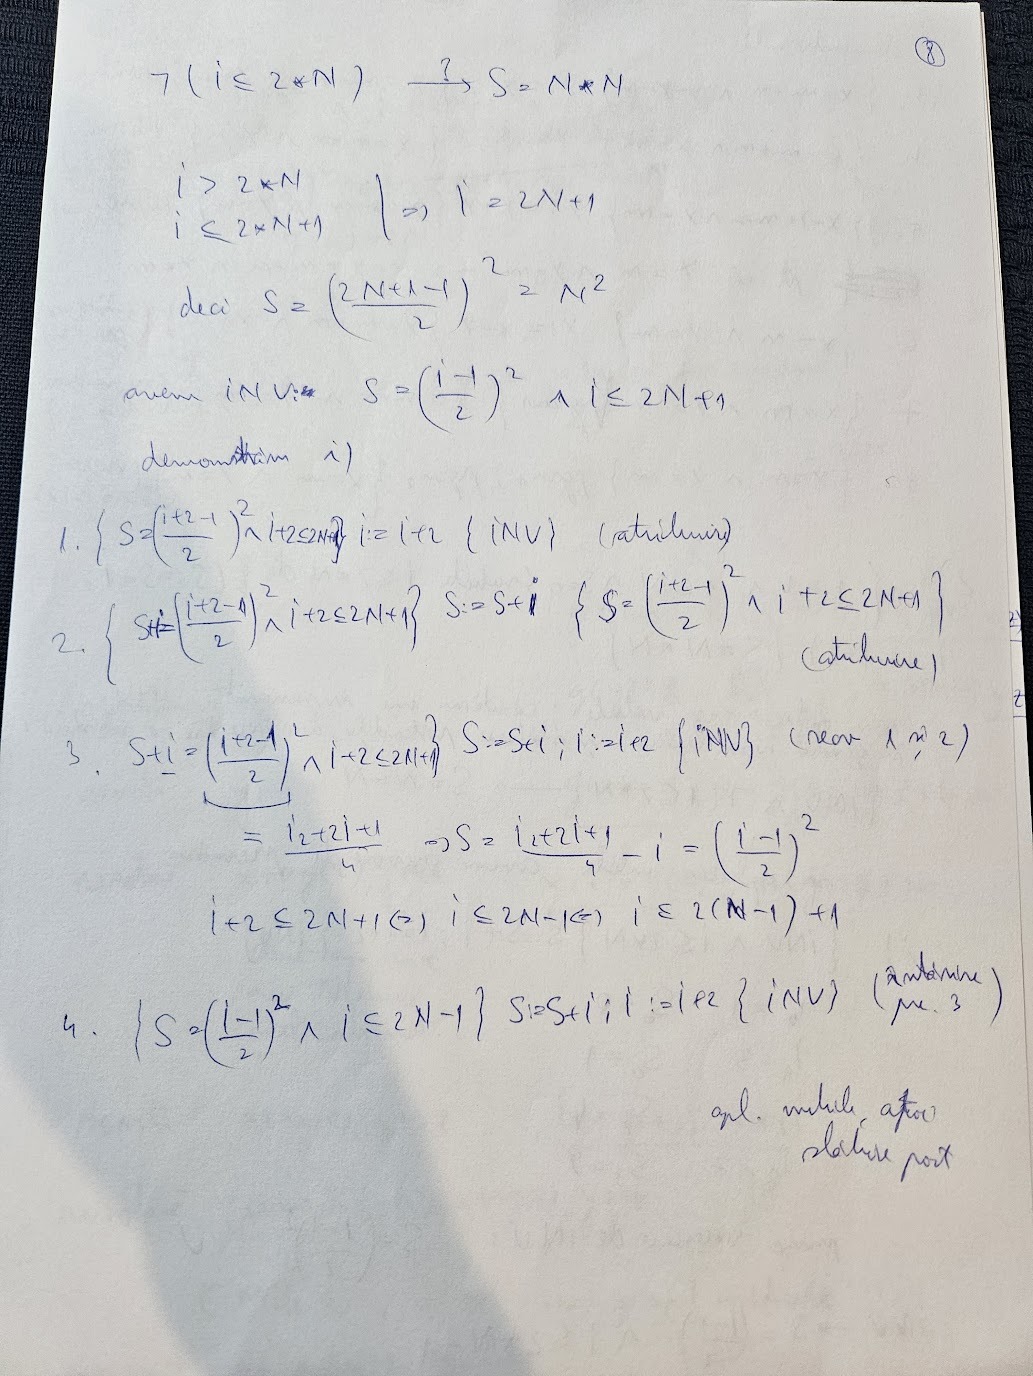 8
¬(i ≤ 2*N) —?→ S = N*N
i > 2*N
i ≤ 2*N+1 | => i = 2N+1
deci S = ((2N+1-1)/2)² = N²
avem INV: S = ((i-1)/2)² ∧ i ≤ 2N+1
demonstrăm i)
1. {S=((i+2-1)/2)² ∧ i+2≤2N+1} i:=i+2 {INV} (atribuire)
2. {S+i=((i+2-1)/2)² ∧ i+2≤2N+1} S:=S+i {S=((i+2-1)/2)² ∧ i+2≤2N+1}
(atribuire)
3. S+i=((i+2-1)/2)² ∧ i+2≤2N+1} S:=S+i; i:=i+2 {INV} (secv 1 și 2)
= (i2+2i+1)/4 => S = (i2+2i+1)/4 - i = ((i-1)/2)²
i+2 ≤ 2N+1 (=) i ≤ 2N-1 (=) i ≤ 2(N-1)+1
4. {S=((i-1)/2)² ∧ i ≤ 2N-1} S:=S+i; i:=i+2 {INV} (întărire
pre. 3)
apl.
post